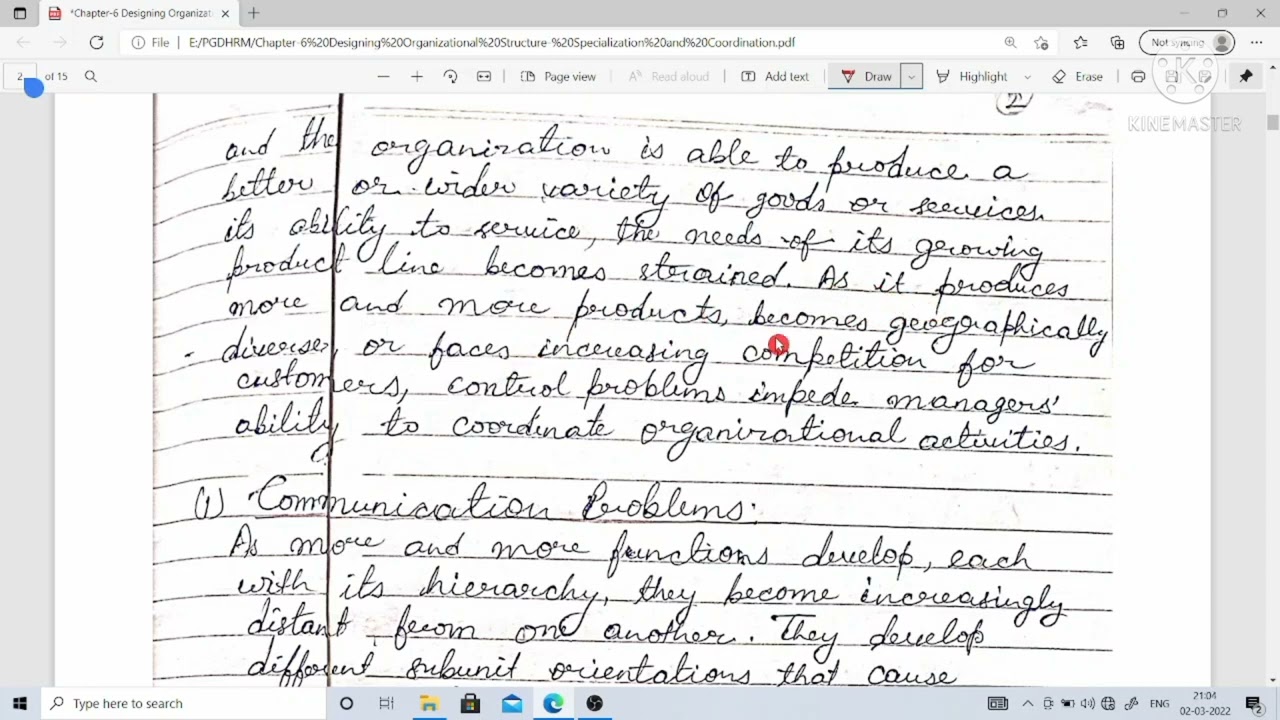 *Chapter-6 Designing Organizat
File
E:/PGDHRM/Chapter-6%20Designing%20Organizational%20Structure-%20Specialization%20and%20Coordination.pdf
Not syncing
2 of 15
Page view
Read aloud
Add text
Draw
Highlight
Erase
KINEMASTER
2
and the organization is able to produce a
better or wider variety of goods or services.
its ability to service, the needs of its growing
product line becomes strained. As it produces
more and more products, becomes geographically
diverse, or faces increasing competition for
customers, control problems impede managers'
ability to coordinate organizational activities.
(1) Communication Problems:
As more and more functions develop, each
with its hierarchy, they become increasingly
distant from one another. They develop
different subunit orientations that cause
Type here to search
ENG
21:04
02-03-2022
2